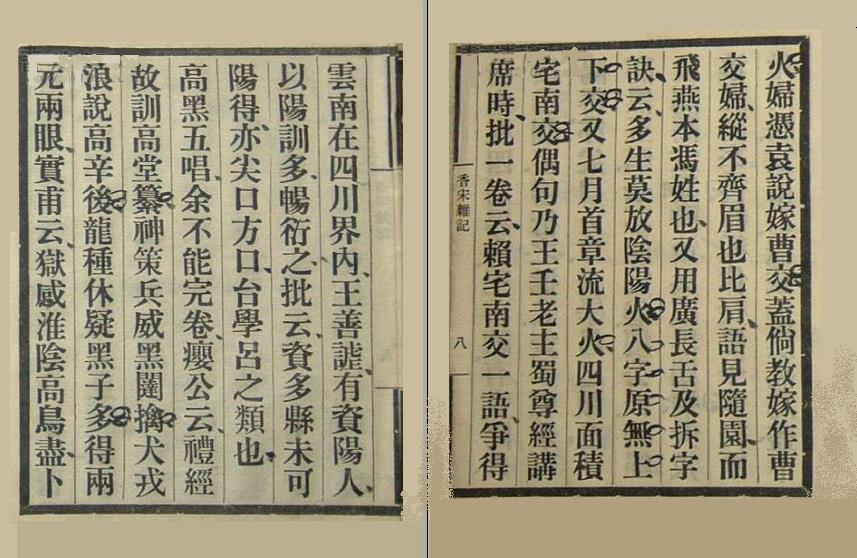 火婦憑袁說嫁曹交蓋倘教嫁作曹
交婦縱不齊眉也比肩語見隨園而
飛燕本馮姓也又用廣長舌及拆字
訣云多生莫放陰陽火八字原無上
下交又七月首章流大火四川面積
宅南交偶句乃王壬老主蜀尊經講
席時批一卷云賴宅南交一語爭得
香宋雜記
八
雲南在四川界內王善謔有資陽人
以陽訓多暢衍之批云資多縣未可
陽得亦尖口方口台學呂之類也
高黑五唱余不能完卷癭公云禮經
故訓高堂纂神策兵威黑闥擒犬戎
浪說高辛後龍種休疑黑子多得兩
元兩眼實甫云獄感淮陰高鳥盡卜